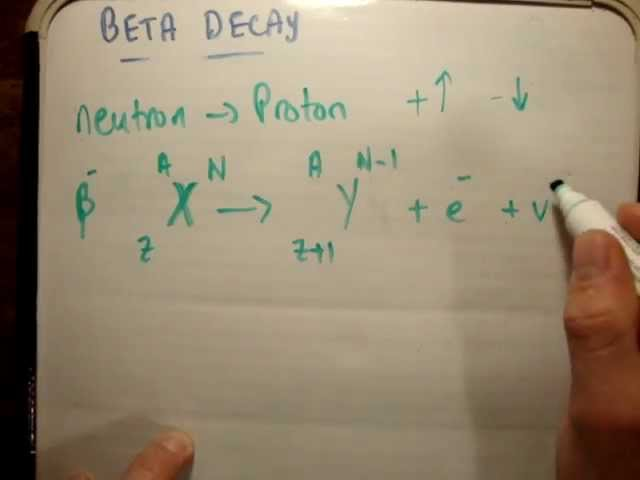 BETA DECAY
neutron → Proton +↑ -↓
β⁻ ᴬ X ᴺ → ᴬ Y ᴺ⁻¹ + e⁻ + v
Z Z+1